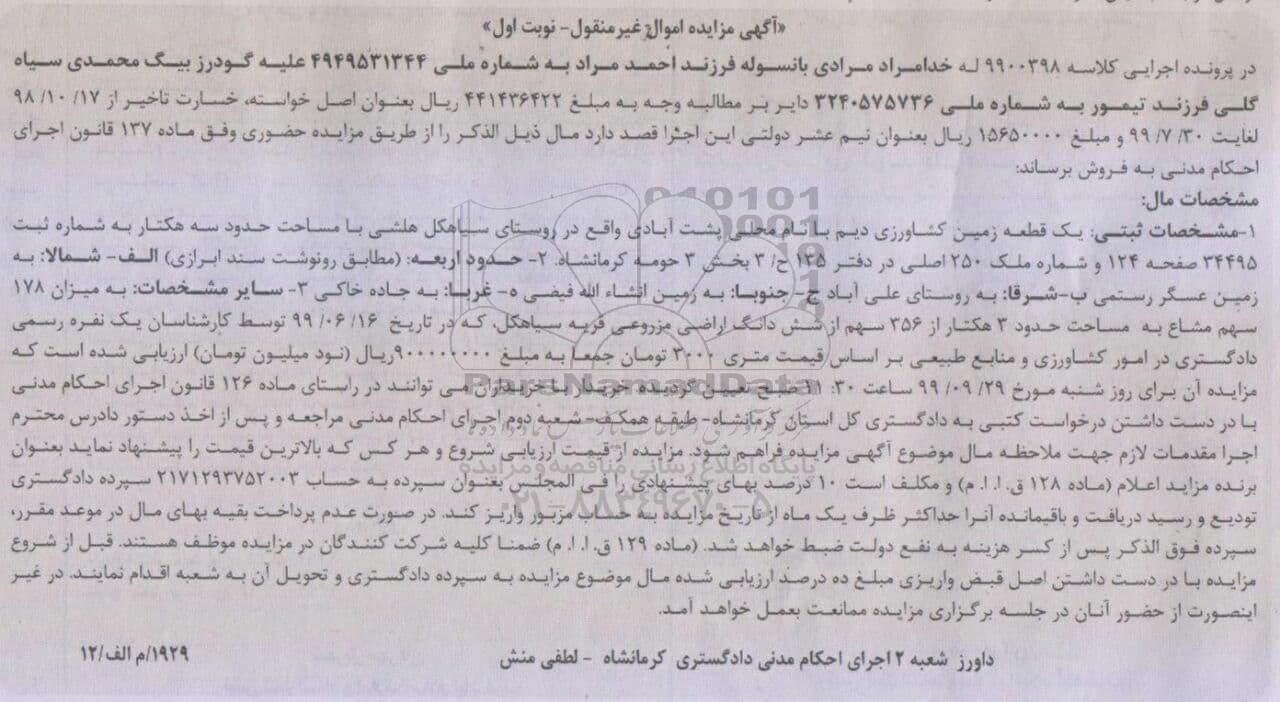 «آگهی مزایده اموال غیرمنقول- نوبت اول»
در پرونده اجرایی کلاسه ۹۹۰۰۳۹۸ له خدامراد مرادی بانسوله فرزند احمد مراد به شماره ملی ۴۹۴۹۵۳۱۳۴۴ علیه گودرز بیگ محمدی سیاه
گلی فرزند تیمور به شماره ملی ۳۲۴۰۵۷۵۷۳۶ دایر بر مطالبه وجه به مبلغ ۴۴۱۴۳۶۴۲۲ ریال بعنوان اصل خواسته، خسارت تاخیر از ۱۷/ ۱۰/ ۹۸
لغایت ۳۰/ ۷/ ۹۹ و مبلغ ۱۵۶۵۰۰۰۰ ریال بعنوان نیم عشر دولتی این اجرا قصد دارد مال ذیل الذکر را از طریق مزایده حضوری وفق ماده ۱۳۷ قانون اجرای
احکام مدنی به فروش برساند:
مشخصات مال:
۱-مشخصات ثبتی: یک قطعه زمین کشاورزی دیم با نام محلی پشت آبادی واقع در روستای سیاهکل هلشی با مساحت حدود سه هکتار به شماره ثبت
۳۴۴۹۵ صفحه ۱۲۴ و شماره ملک ۲۵۰ اصلی در دفتر ۱۳۵ ح/ ۳ بخش ۳ حومه کرمانشاه. ۲- حدود اربعه: (مطابق رونوشت سند ابرازی) الف- شمالا: به
زمین عسگر رستمی ب-شرقا: به روستای علی آباد ج- جنوبا: به زمین انشاء الله فیضی ه- غربا: به جاده خاکی ۳- سایر مشخصات: به میزان ۱۷۸
سهم مشاع به مساحت حدود ۳ هکتار از ۳۵۶ سهم از شش دانگ اراضی مزروعی قریه سیاهکل، که در تاریخ ۱۶/ ۰۶/ ۹۹ توسط کارشناسان یک نفره رسمی
دادگستری در امور کشاورزی و منابع طبیعی بر اساس قیمت متری ۳۰۰۰ تومان جمعا به مبلغ ۹۰۰۰۰۰۰۰۰ریال (نود میلیون تومان) ارزیابی شده است که
مزایده آن برای روز شنبه مورخ ۲۹/ ۰۹/ ۹۹ ساعت ۳۰: ۱۱ صبح تعیین گردیده خریدار یا خریداران می توانند در راستای ماده ۱۲۶ قانون اجرای احکام مدنی
با در دست داشتن درخواست کتبی به دادگستری کل استان کرمانشاه- طبقه همکف- شعبه دوم اجرای احکام مدنی مراجعه و پس از اخذ دستور دادرس محترم
اجرا مقدمات لازم جهت ملاحظه مال موضوع آگهی مزایده فراهم شود. مزایده از قیمت ارزیابی شروع و هر کس که بالاترین قیمت را پیشنهاد نماید بعنوان
برنده مزاید اعلام (ماده ۱۲۸ ق. ا. ا. م) و مکلف است ۱۰ درصد بهای پیشنهادی را فی المجلس بعنوان سپرده به حساب ۲۱۷۱۲۹۳۷۵۲۰۰۳ سپرده دادگستری
تودیع و رسید دریافت و باقیمانده آنرا حداکثر ظرف یک ماه از تاریخ مزایده به حساب مزبور واریز کند. در صورت عدم پرداخت بقیه بهای مال در موعد مقرر،
سپرده فوق الذکر پس از کسر هزینه به نفع دولت ضبط خواهد شد. (ماده ۱۲۹ ق. ا. ا. م) ضمنا کلیه شرکت کنندگان در مزایده موظف هستند. قبل از شروع
مزایده با در دست داشتن اصل قبض واریزی مبلغ ده درصد ارزیابی شده مال موضوع مزایده به سپرده دادگستری و تحویل آن به شعبه اقدام نمایند. در غیر
اینصورت از حضور آنان در جلسه برگزاری مزایده ممانعت بعمل خواهد آمد.
داورز شعبه ۲ اجرای احکام مدنی دادگستری کرمانشاه - لطفی منش
۱۹۲۹/م الف/۱۲
ParsNamadData
پایگاه اطلاع رسانی مناقصه و مزایده
۰۲۱-۸۸۳۴۹۶۷۰-۵